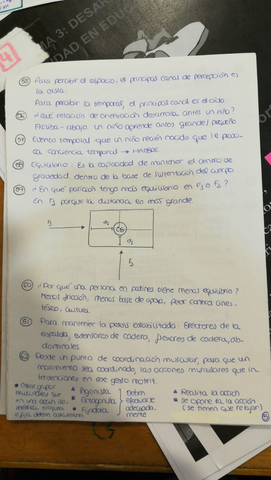 Para percibir el espacio, el principal canal de percepción es
la vista.
Para percibir lo temporal, el principal canal es el oído.
¿Qué relación de orientación desarrolla antes un niño?
Arriba-abajo. Un niño aprende antes grande/pequeño
Evento temporal que un niño recién nacido que le produ-
ce conciencia temporal → HAMBRE.
Equilibrio: Es la capacidad de mantener el centro de
gravedad dentro de la base de sustentación del cuerpo.
¿En qué posición tengo más equilibrio en F1 o F2?
En F1 porque la distancia es más grande.
F1
d1
CG
d2
F2
60 ¿Por qué una persona en patines tiene menos equilibrio?
Menos fricción, menos base de apoyo, peor control cines-
tésico, altura.
61 Para mantener la postura estabilizada: Erectores de la
espalda, extensores de cadera, flexores de cadera, ab-
dominales.
62 Desde un punto de coordinación muscular, para que un
movimiento sea coordinado, las acciones musculares que in-
tervienen en ese gesto motriz.
Agonista
Antagonista
Fijadora
Deben
ejecutarse
adecuada-
mente
Realiza la acción
se opone a la acción
(se tienen que relajar)